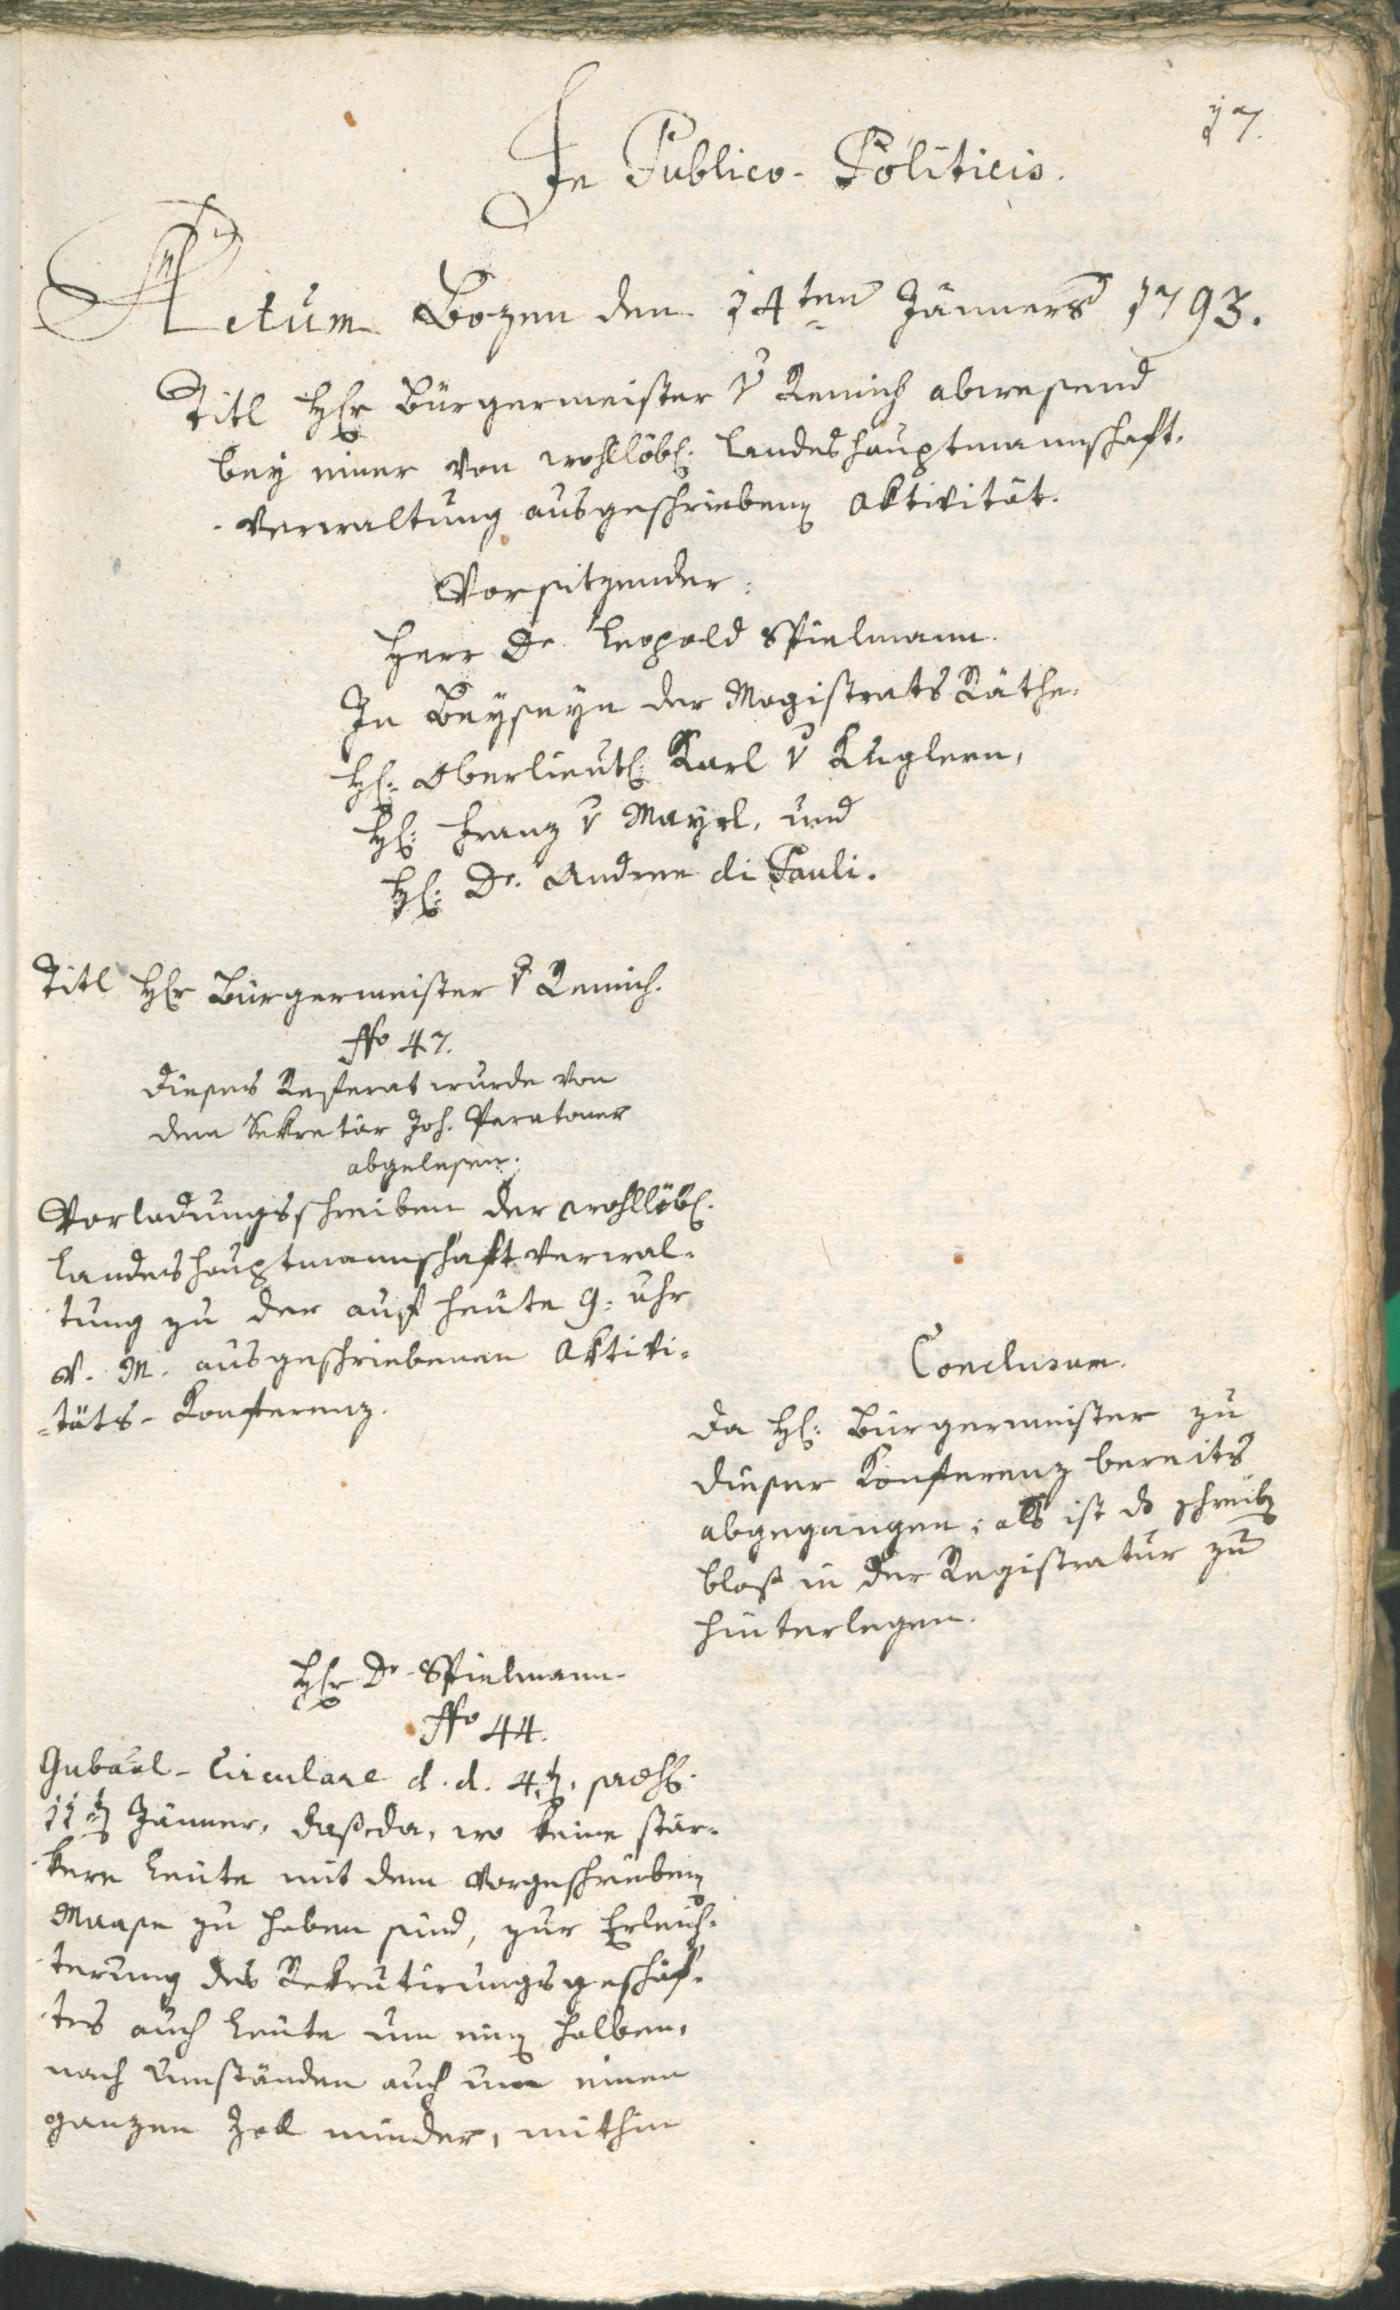 17.
In Publico-Politicis.
Actum Bozen den 14ten Jänners 1793.
Titl Hr Bürgermeister v Remich abwesend
bey einer von wohllöbl: Landeshauptmannschaft-
verwaltung ausgeschriebenen Aktivität.
Vorsitzender:
Herr Dr. Leopold Spielmann.
In Beyseyn der Magistrats Räthe.
H: Oberlieut: Karl v Kuglern,
H: Franz v Mayrl, und
H: Dr. Andree di Pauli.
Titl Hr Bürgermeister v Remich.
No 47.
Dieses Referat wurde von
dem Sekretär Joh. Peratoner
abgelesen.
Vorladungsschreiben der wohllöbl.
Landeshauptmannschaftverwal-
tung zu der auf heute 9: Uhr
V. M. ausgeschriebenen Aktivi-
täts-Konferenz.
Conclusum.
Da H: Bürgermeister zu
dieser Konferenz bereits
abgegangen; als ist ds schreiben
bloß in der Registratur zu
hinterlegen.
Hr Dr. Spielmann.
No 44.
Gubaal-Circulare d. d. 4ten,
11ten Jänner, daß da, wo keine stär-
kere Leute mit dem vorgeschriebenen
Maase zu haben sind, zur Erleich-
terung des Rekrutirungsgeschäf-
tes auch Leute um einen halben,
nach Umständen auch um einen
ganzen Zoll minder, mithin